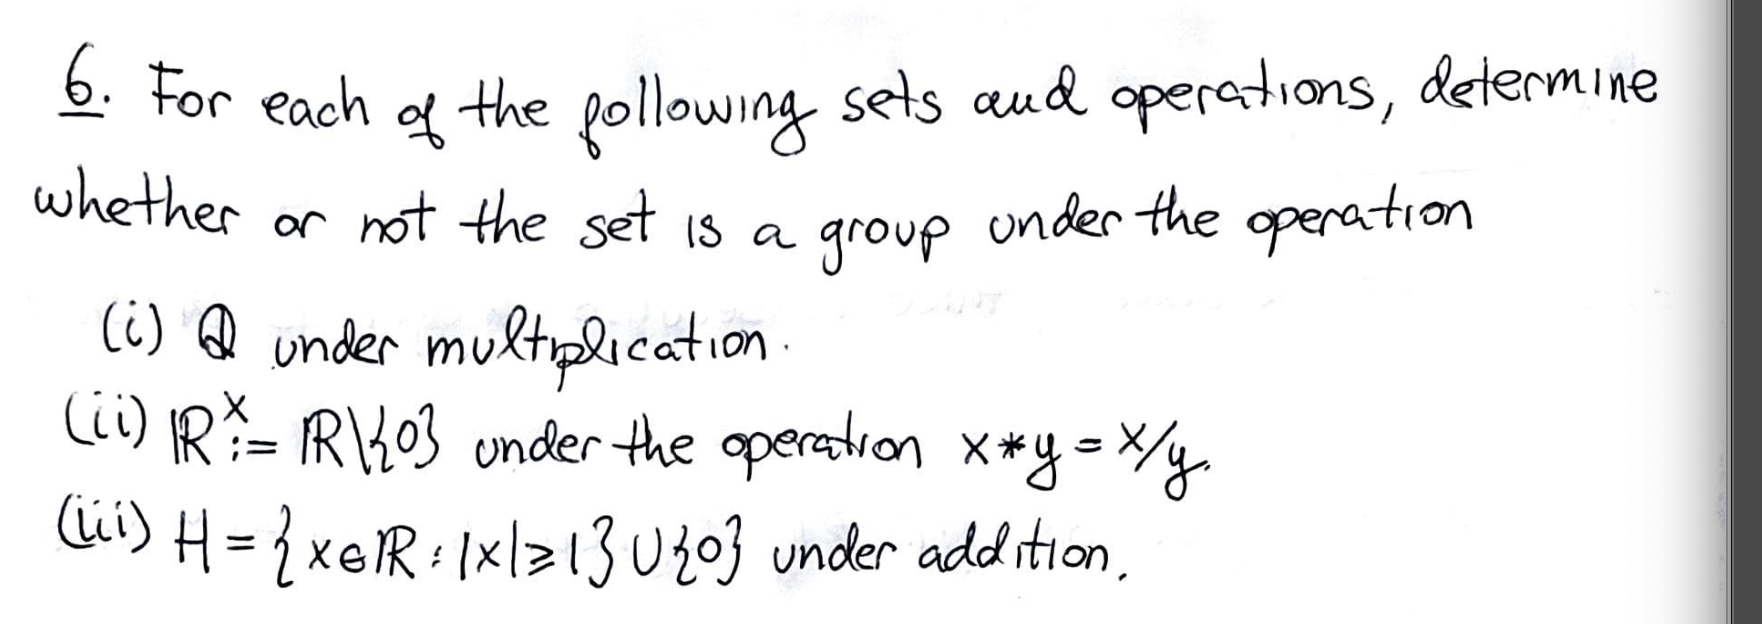 6. For each of the following sets and operations, determine
whether or not the set is a group under the operation
(i) ℚ under multiplication.
(ii) ℝˣ := ℝ\{0} under the operation x*y = x/y.
(iii) H = {x∈ℝ : |x|≥1}∪{0} under addition.